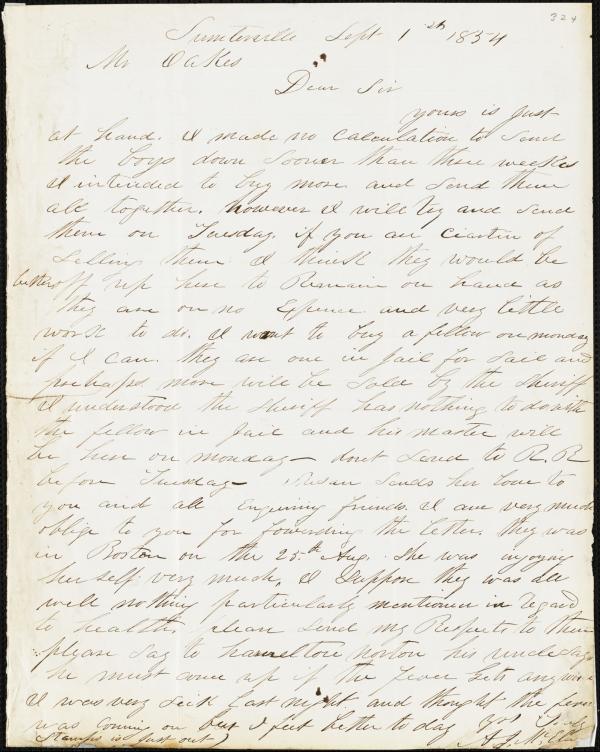 324
Sumterville Sept 1st 1854
Mr Oakes
Dear Sir
yours is Just
at hand. I made no calculation to Send
the boys down Sooner than three weekes
I intended to buy more and Send them
all together. however I will try and send
them on Tuesday. if you are ciartin of
Selling them I think they would be
better off up here to Remain on hand as
they are on no Expence and very little
work to do. I want to buy a fellow on monday
if I can. they are one in Jail for Sail and
perhaps more will be Sold by the Sheriff
I understood the Sheriff has nothing to do with
the fellow in Jail and his master will
be here on monday — dont Send to R. R
before Tuesday — Susan Sends her love to
you and all Enquiring friends. I am very much
oblige to you for fowerding the letter. they was
in Boston on the 25th Aug. She was injoying
her self very much, I Suppose they was all
well nothing particularly mentioned in regard
to health. please Send my Respects to them
please Say to hamelton norton his uncle Says
he must come up if the fever gets any worse
I was very Sick last night and thought the fever
was coming on but I feel better to day
(Stamps is Just out)
A J McElveen